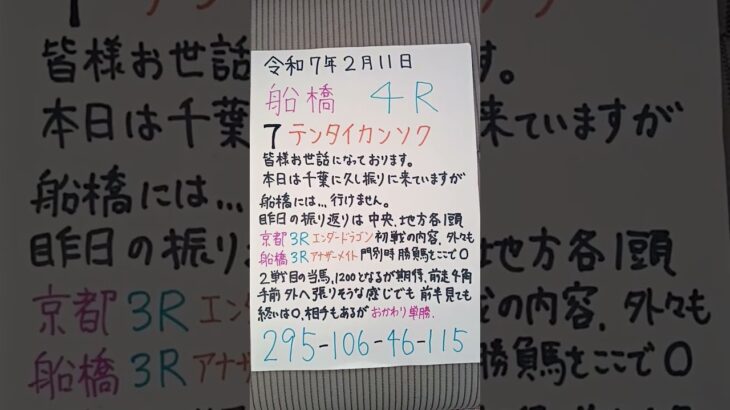 令和7年2月11日
船橋 4R
7 テンタイカンソク
皆様お世話になっております。
本日は千葉に久し振りに来ていますが
船橋には...行けません。
昨日の振り返りは 中央、地方各1頭
京都3Rエンダードラゴン 初戦の内容、外々も
船橋3Rアナザーメイト 門別時勝負馬をここで〇
2戦目の当馬、1200となるが期待、前走4角
手前外へ張りそうな感じでも 前半見ても
終いは〇、相手もあるが おかわり単勝.
295-106-46-115
7
皆様お世話
す。
本日は千葉
来ていますが
船橋には
昨日の振り
地方各1頭
京都3Rエン
戦の内容、外々も
船橋3Rアナ
勝負馬をここで〇